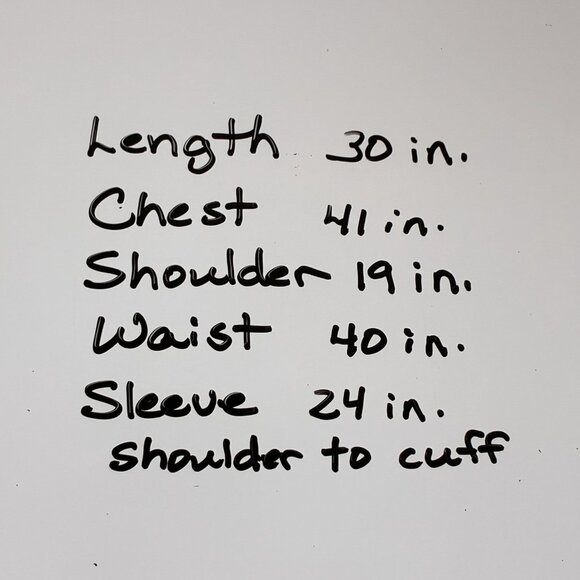 Length 30 in.
Chest 41 in.
Shoulder 19 in.
Waist 40 in.
Sleeve 24 in.
shoulder to cuff